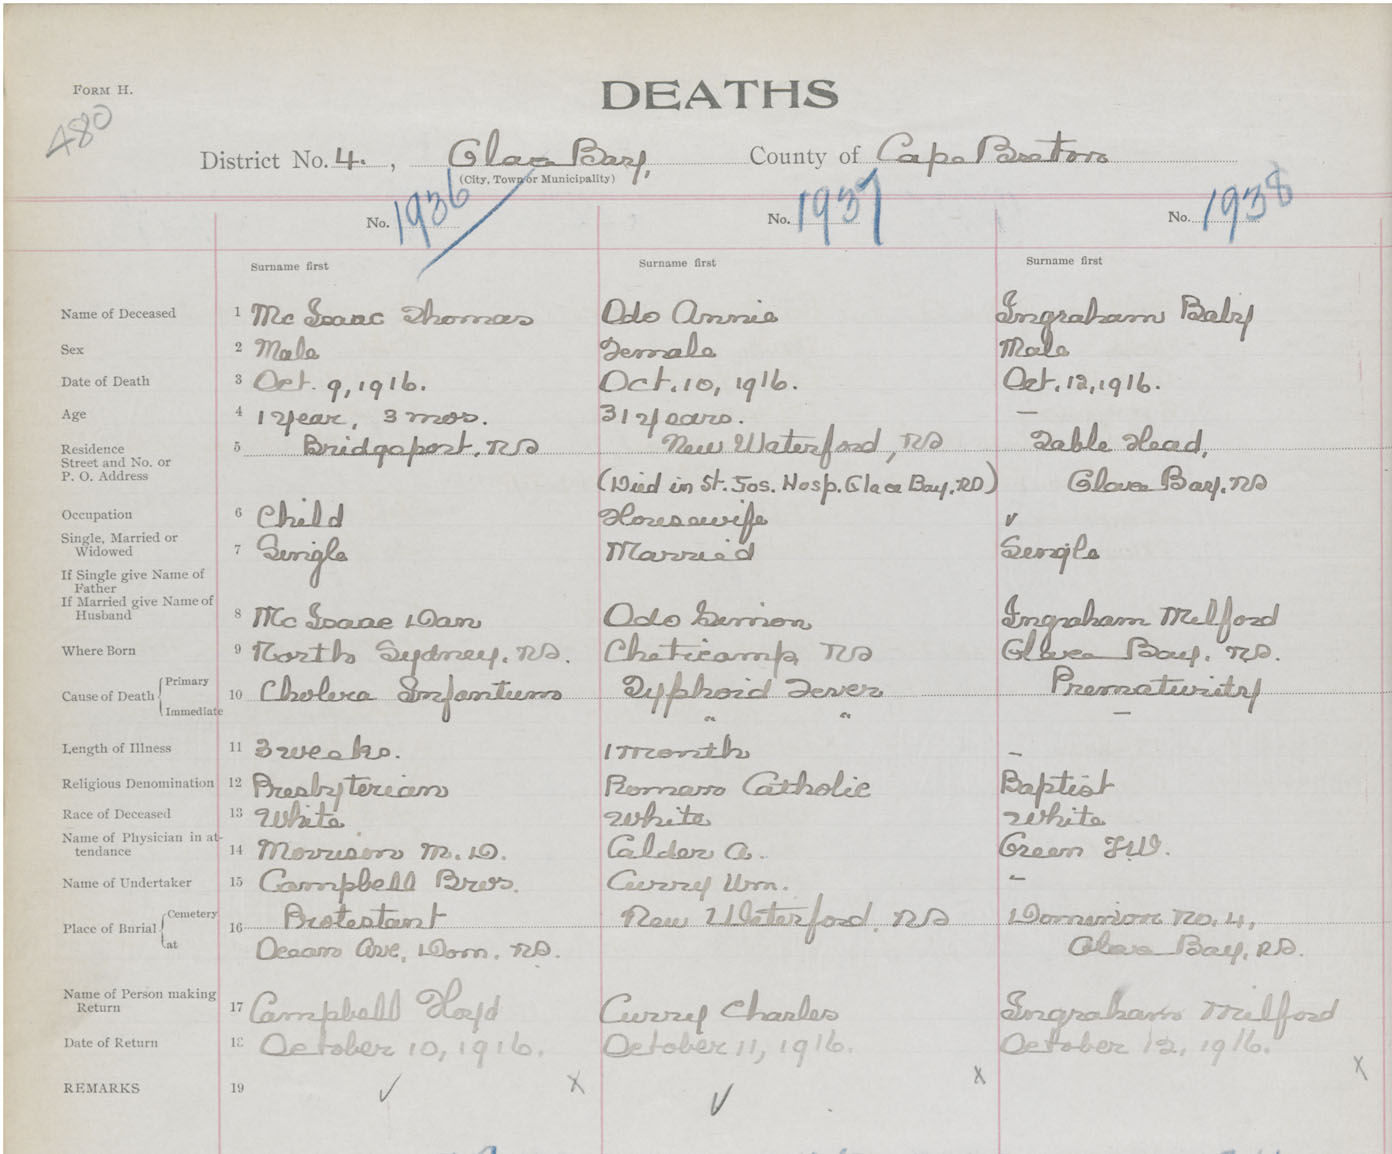 FORM H.
DEATHS
480
District No. 4. , Glace Bay, County of Cape Breton
(City, Town or Municipality)
No. 1936 No. 1937 No. 1938
Surname first Surname first Surname first
Name of Deceased 1 Mc Isaac Thomas Odo Annie Ingraham Baby
Sex 2 Male Female Male
Date of Death 3 Oct. 9, 1916. Oct. 10, 1916. Oct. 12, 1916.
Age 4 1 year, 3 mos. 31 years. —
Residence 5 Bridgeport, NS New Waterford, NS Table Head,
Street and No. or
P. O. Address (Died in St. Jos. Hosp. Glace Bay, NS) Glace Bay, NS
Occupation 6 Child Housewife ✓
Single, Married or
Widowed 7 Single Married Single
If Single give Name of
Father
If Married give Name of
Husband 8 Mc Isaac Dan Odo Simion Ingraham Milford
Where Born 9 North Sydney, NS. Cheticamp, NS Glace Bay, NS.
Cause of Death { Primary 10 Cholera Infantum Typhoid Fever Prematurity
Immediate " " —
Length of Illness 11 3 weeks. 1 month –
Religious Denomination 12 Presbyterian Roman Catholic Baptist
Race of Deceased 13 White White White
Name of Physician in at-
tendance 14 Morrison M. D. Calder A. Green F.W.
Name of Undertaker 15 Campbell Bros. Curry Wm. –
Place of Burial { Cemetery 16 Protestant New Waterford, NS Dominion No. 4,
at Ocean Ave, Dom. NS. Glace Bay, NS.
Name of Person making
Return 17 Campbell Floyd Curry Charles Ingraham Milford
Date of Return 18 October 10, 1916. October 11, 1916. October 12, 1916.
REMARKS 19 ✓ x ✓ x x